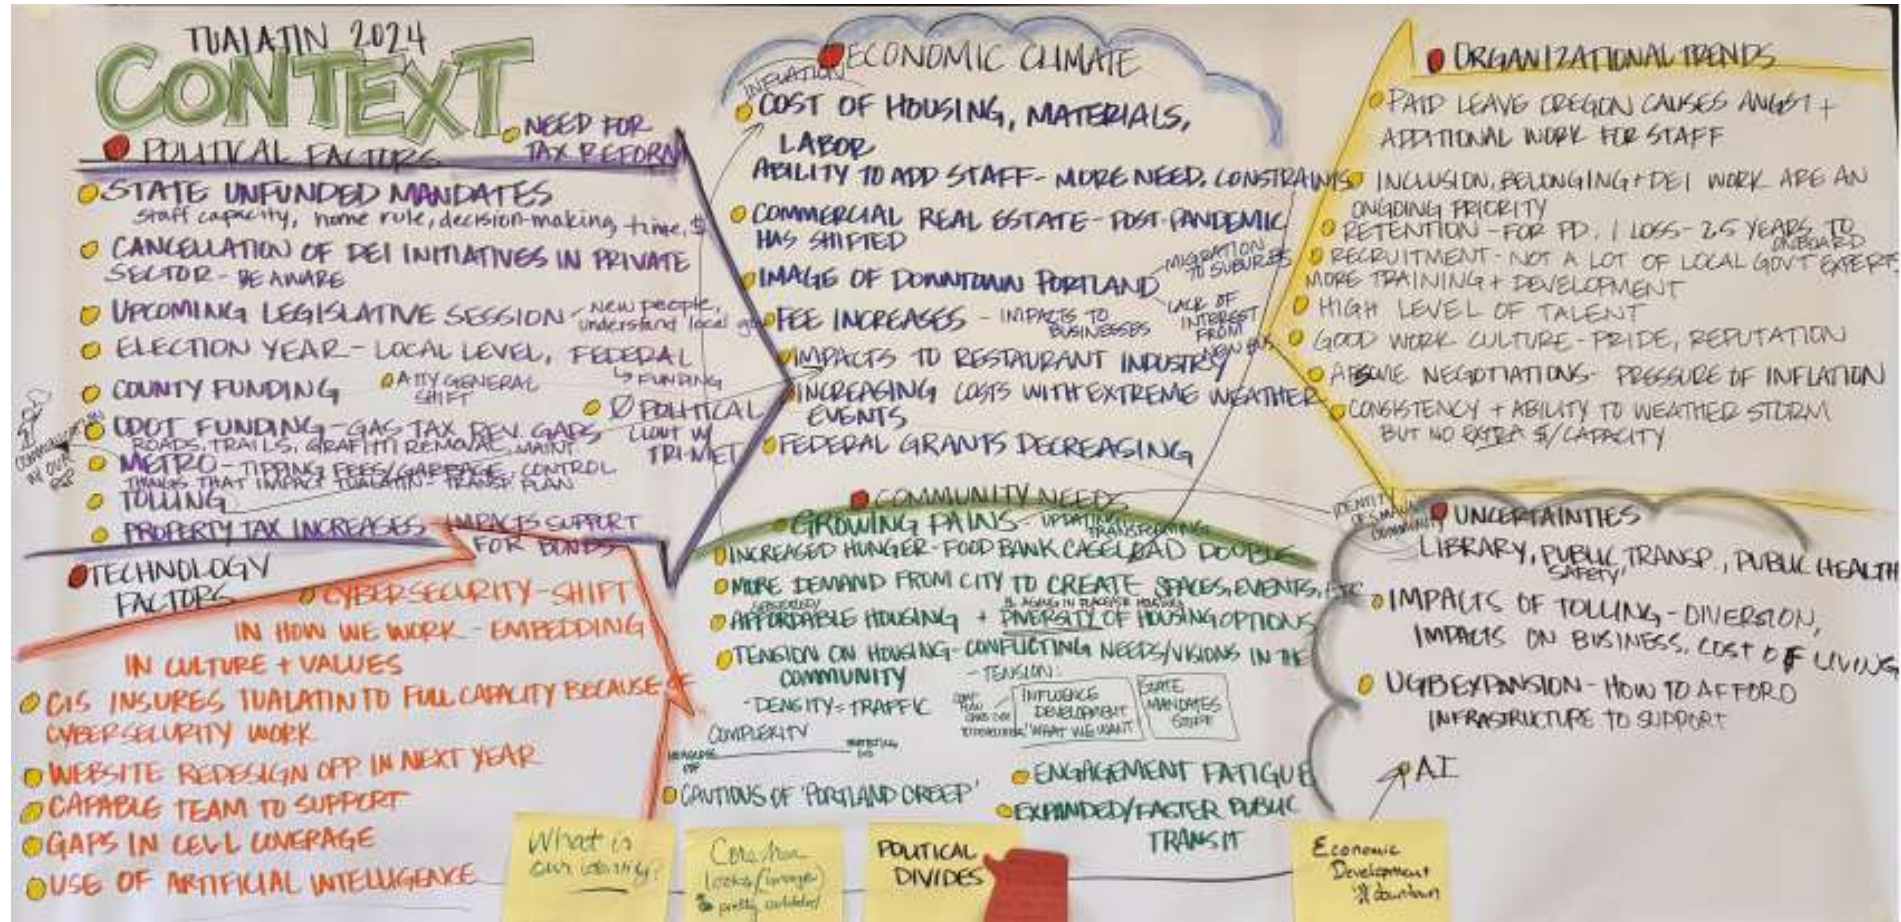 TUALATIN 2024
CONTEXT
POLITICAL FACTORS
NEED FOR
TAX REFORM
STATE UNFUNDED MANDATES
staff capacity, home rule, decision-making, time, $
CANCELLATION OF DEI INITIATIVES IN PRIVATE
SECTOR - BE AWARE
UPCOMING LEGISLATIVE SESSION - New people,
understand local
ELECTION YEAR - LOCAL LEVEL, FEDERAL
↳ FUNDING
COUNTY FUNDING
ATTY GENERAL
SHIFT
Ø POLITICAL
CLOUT W/
TRI-MET
ODOT FUNDING - GAS TAX REV. GAPS
ROADS, TRAILS, GRAFITTI REMOVAL, MAINT
METRO - TIPPING FEES/GARBAGE, CONTROL
THINGS THAT IMPACT TUALATIN - TRANSP. PLAN
TOLLING
PROPERTY TAX INCREASES - IMPACTS SUPPORT
FOR BONDS
IN OUR
TECHNOLOGY
FACTORS
CYBERSECURITY - SHIFT
IN HOW WE WORK - EMBEDDING
IN CULTURE + VALUES
CIS INSURES TUALATIN TO FULL CAPACITY BECAUSE OF
CYBERSECURITY WORK
WEBSITE REDESIGN OPP IN NEXT YEAR
CAPABLE TEAM TO SUPPORT
GAPS IN CELL COVERAGE
USE OF ARTIFICIAL INTELLIGENCE
ECONOMIC CLIMATE
INFLATION
COST OF HOUSING, MATERIALS,
LABOR
ABILITY TO ADD STAFF - MORE NEED, CONSTRAINTS
COMMERCIAL REAL ESTATE - POST-PANDEMIC
HAS SHIFTED
IMAGE OF DOWNTOWN PORTLAND
MIGRATION
TO SUBURBS
LACK OF
INTEREST
FROM
NEW BUS
FEE INCREASES - IMPACTS TO
BUSINESSES
IMPACTS TO RESTAURANT INDUSTRY
INCREASING COSTS WITH EXTREME WEATHER
EVENTS
FEDERAL GRANTS DECREASING
COMMUNITY NEEDS
GROWING PAINS - UPDATING
TRANSFORMING
INCREASED HUNGER - FOOD BANK CASELOAD DOUBLE
MORE DEMAND FROM CITY TO CREATE SPACES, EVENTS, ETC
AGING IN PLACE/SR HOUSING
AFFORDABLE HOUSING + DIVERSITY OF HOUSING OPTIONS
TENSION ON HOUSING - CONFLICTING NEEDS/VISIONS IN THE
COMMUNITY
- TENSION:
- DENSITY = TRAFFIC
INFLUENCE
DEVELOPMENT
"WHAT WE WANT"
STATE
MANDATES
COMPLEXITY
CAUTIOUS OF 'PORTLAND CREEP'
ENGAGEMENT FATIGUE
EXPANDED/FASTER PUBLIC
TRANSIT
ORGANIZATIONAL TRENDS
PAID LEAVE OREGON CAUSES ANGST +
ADDITIONAL WORK FOR STAFF
INCLUSION, BELONGING + DEI WORK ARE AN
ONGOING PRIORITY
RETENTION - FOR PD, 1 LOSS - 2.5 YEARS TO
ONBOARD
RECRUITMENT - NOT A LOT OF LOCAL GOV'T EXPERT.
MORE TRAINING + DEVELOPMENT
HIGH LEVEL OF TALENT
GOOD WORK CULTURE - PRIDE, REPUTATION
NEGOTIATIONS - PRESSURE OF INFLATION
CONSISTENCY + ABILITY TO WEATHER STORM
BUT NO EXTRA $/CAPACITY
IDENTITY
COMMUNITY
UNCERTAINTIES
LIBRARY, PUBLIC TRANSP., PUBLIC HEALTH
SAFETY
IMPACTS OF TOLLING - DIVERSION,
IMPACTS ON BUSINESS, COST OF LIVING
UGB EXPANSION - HOW TO AFFORD
INFRASTRUCTURE TO SUPPORT
AI
What is
our identity?
pretty
POLITICAL
DIVIDES
Economic
Development
downtown